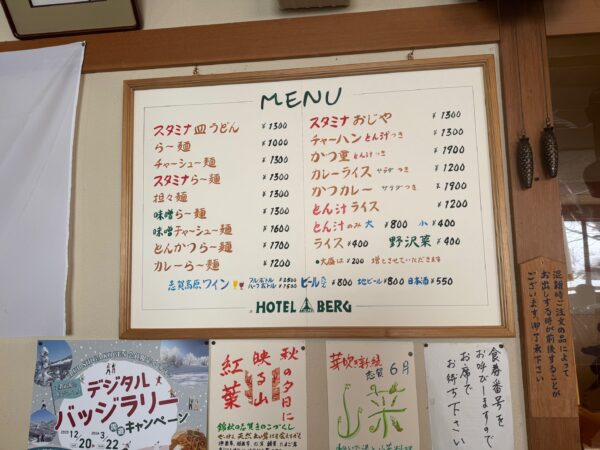 MENU
スタミナ皿うどん ¥1300
らー麺 ¥1000
チャーシュー麺 ¥1300
スタミナらー麺 ¥1300
担々麺 ¥1300
味噌らー麺 ¥1300
味噌チャーシュー麺 ¥1600
とんかつらー麺 ¥1700
カレーらー麺 ¥1200
スタミナおじや ¥1300
チャーハン とん汁つき ¥1300
かつ重 とん汁つき ¥1900
カレーライス サラダつき ¥1200
かつカレー サラダつき ¥1900
とん汁ライス ¥1200
とん汁のみ 大 ¥800 小 ¥400
ライス ¥400 野沢菜 ¥400
大盛は¥200 増とさせていただきます
志賀高原ワイン フルボトル ¥2800 ハーフボトル ¥1500 ビール ¥800 地ビール ¥800 日本酒 ¥550
HOTEL BERG
混雑時ご注文の品によって
お出しする時が前後することが
ございます。御了承下さい
デジタル
バッジラリー
キャンペーン
12/20 3/22
秋の夕日に
映る山
紅葉
芽吹き
志賀 6月
山菜
食券番号を
お呼びしますので
お席で
お待ち下さい